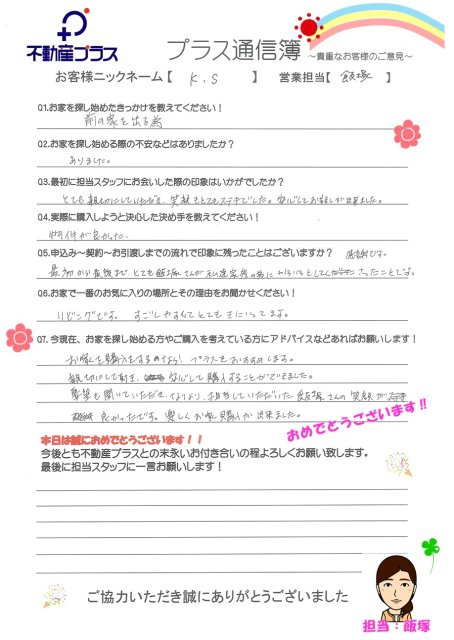 不動産プラス
プラス通信簿 ～貴重なお客様のご意見～
お客様ニックネーム【 K.S 】 営業担当【 飯塚 】
Q1.お家を探し始めたきっかけを教えてください！
前の家を出る為
Q2.お家を探し始める際の不安などはありましたか？
ありました。
Q3.最初に担当スタッフにお会いした際の印象はいかがでしたか？
とても親切にしていただき、笑顔もとてもステキでした。安心してお家探しが出来ました。
Q4.実際に購入しようと決心した決め手を教えてください！
物件が良かった。
Q5.申込み～契約～お引渡しまでの流れで印象に残ったことはございますか？ 感謝です。
最初から最後までとても飯塚さんが私達家族の為にいろいろとして下さったことです。
Q6.お家で一番のお気に入りの場所とその理由をお聞かせください！
リビングです。 すごしやすくてとてもきにいってます。
Q7.今現在、お家を探し始める方やご購入を考えている方にアドバイスなどあればお願いします！
お家を購入をするのなら！ プラスをおすすめします。
親切にして頂き、安心して購入することができました。
要望も聞いていただき、なにより、担当していただいた飯塚さんの笑顔が
良かったです。楽しくお家購入が出来ました。
おめでとうございます!!
本日は誠におめでとうございます！！
今後とも不動産プラスとの末永いお付き合いの程よろしくお願い致します。
最後に担当スタッフに一言お願いします！
ご協力いただき誠にありがとうございました
担当：飯塚